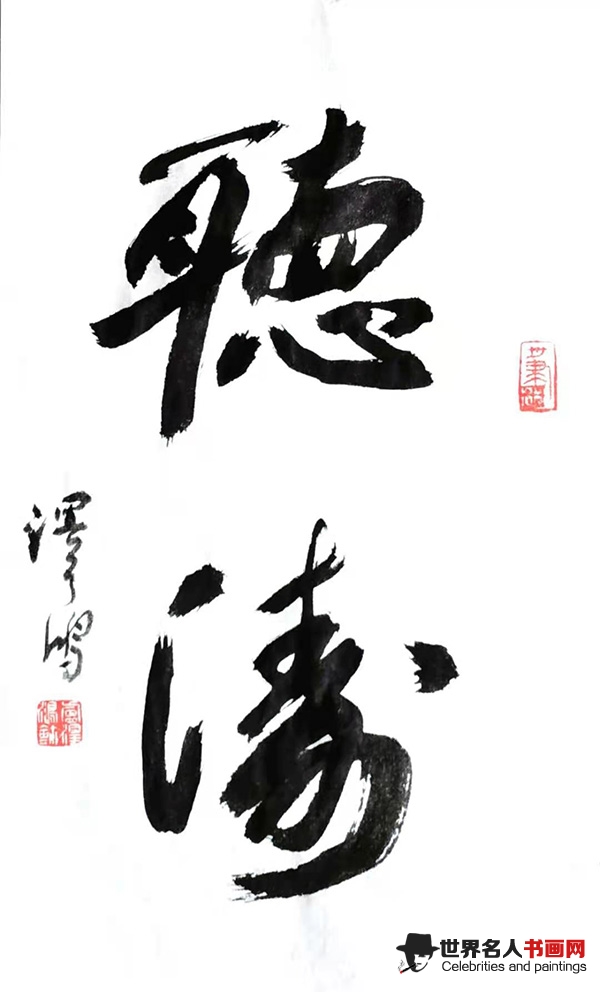 聽
濤
泽鸿
世界名人书画网
Celebrities and paintings